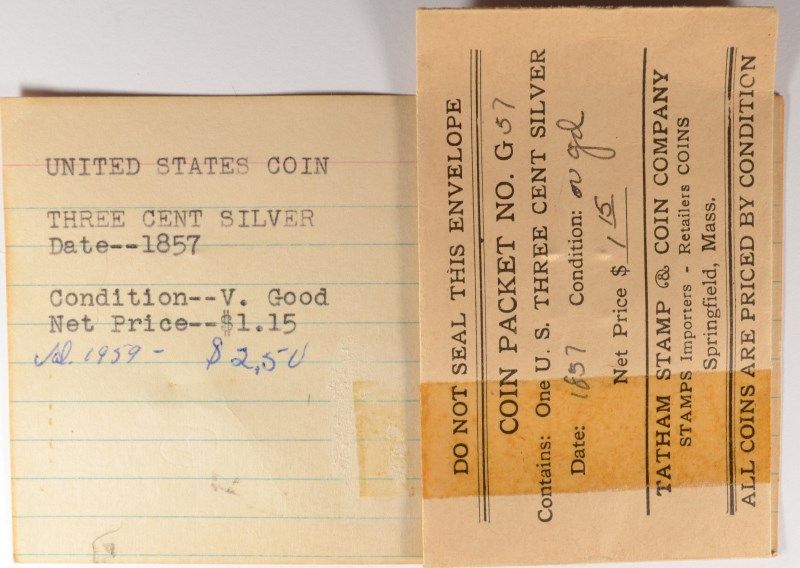 UNITED STATES COIN
THREE CENT SILVER
Date--1857
Condition--V. Good
Net Price--$1.15
Val. 1959- $2.50
DO NOT SEAL THIS ENVELOPE
COIN PACKET NO. G 57
Contains: One U. S. THREE CENT SILVER
Date: 1857 Condition: v gd
Net Price $ 1 15
TATHAM STAMP & COIN COMPANY
STAMPS Importers - Retailers COINS
Springfield, Mass.
ALL COINS ARE PRICED BY CONDITION